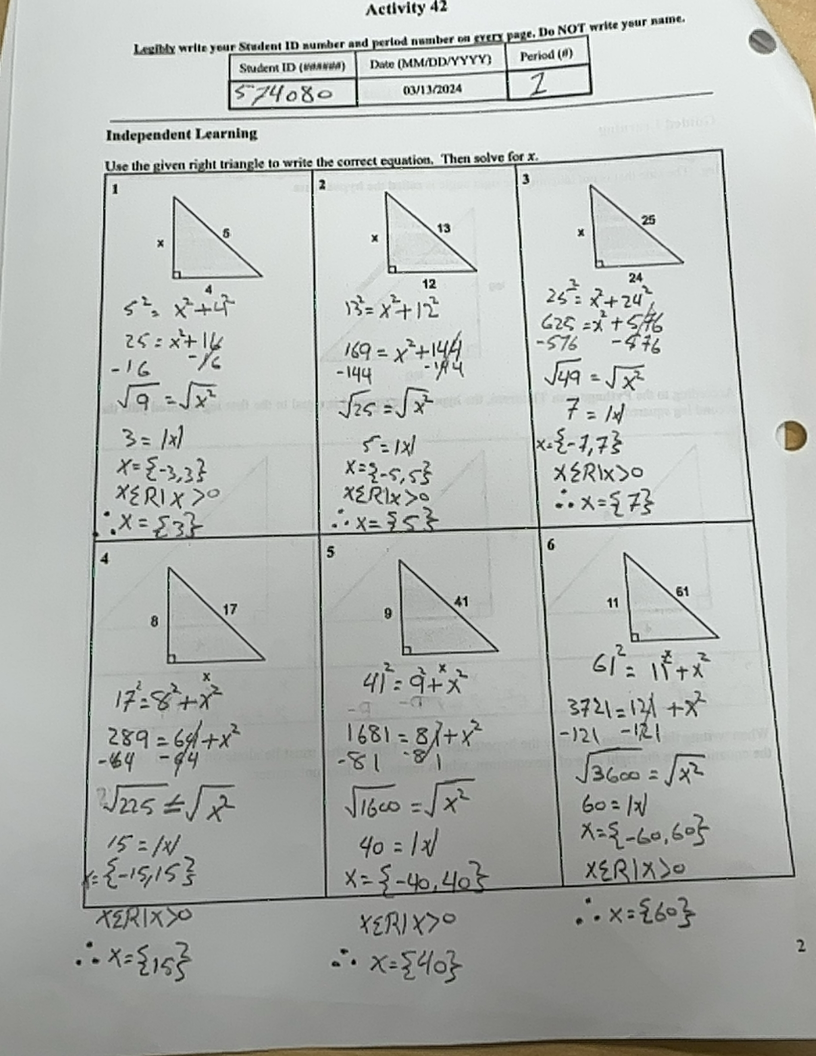 Activity 42
Legibly write your Student ID number and period number on every page. Do NOT write your name.
Student ID (######) Date (MM/DD/YYYY) Period (#)
574080 03/13/2024 1
Independent Learning
Use the given right triangle to write the correct equation. Then solve for x.
1
x
5
4
5² = x²+4²
25 = x²+16
-16 -16
√9 = √x²
3 = |x|
x={-3,3}
xƐR|x>0
∴x={3}
2
x
13
12
13²=x²+12²
169 = x²+144
-144 -144
√25 = √x²
5 = |x|
x={-5,5}
xƐR|x>0
∴x={5}
3
x
25
24
25²=x²+24²
625=x²+576
-576 -576
√49 = √x²
7 = |x|
x={-7,7}
xƐR|x>0
∴x={7}
4
8
17
x
17²=8²+x²
289=64+x²
-64 -64
√225 = √x²
15 = |x|
x={-15,15}
xƐR|x>0
∴x={15}
5
9
41
x
41²=9²+x²
-9 -9
1681=81+x²
-81 -81
√1600 = √x²
40 = |x|
x={-40,40}
xƐR|x>0
∴x={40}
6
11
61
x
61²=11²+x²
3721=121+x²
-121 -121
√3600=√x²
60=|x|
x={-60,60}
xƐR|x>0
∴x={60}
2